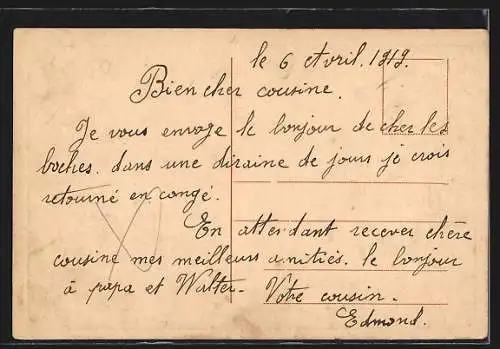 le 6 Avril. 1919.
Bien cher cousine.
Je vous envoye le bonjour de cher les
boches. dans une diraine de jours je crois
retourné en congé.
En attendant recever chère
cousine mes meilleurs amitiés. le bonjour
à papa et Walter. Votre cousin.
Edmond.